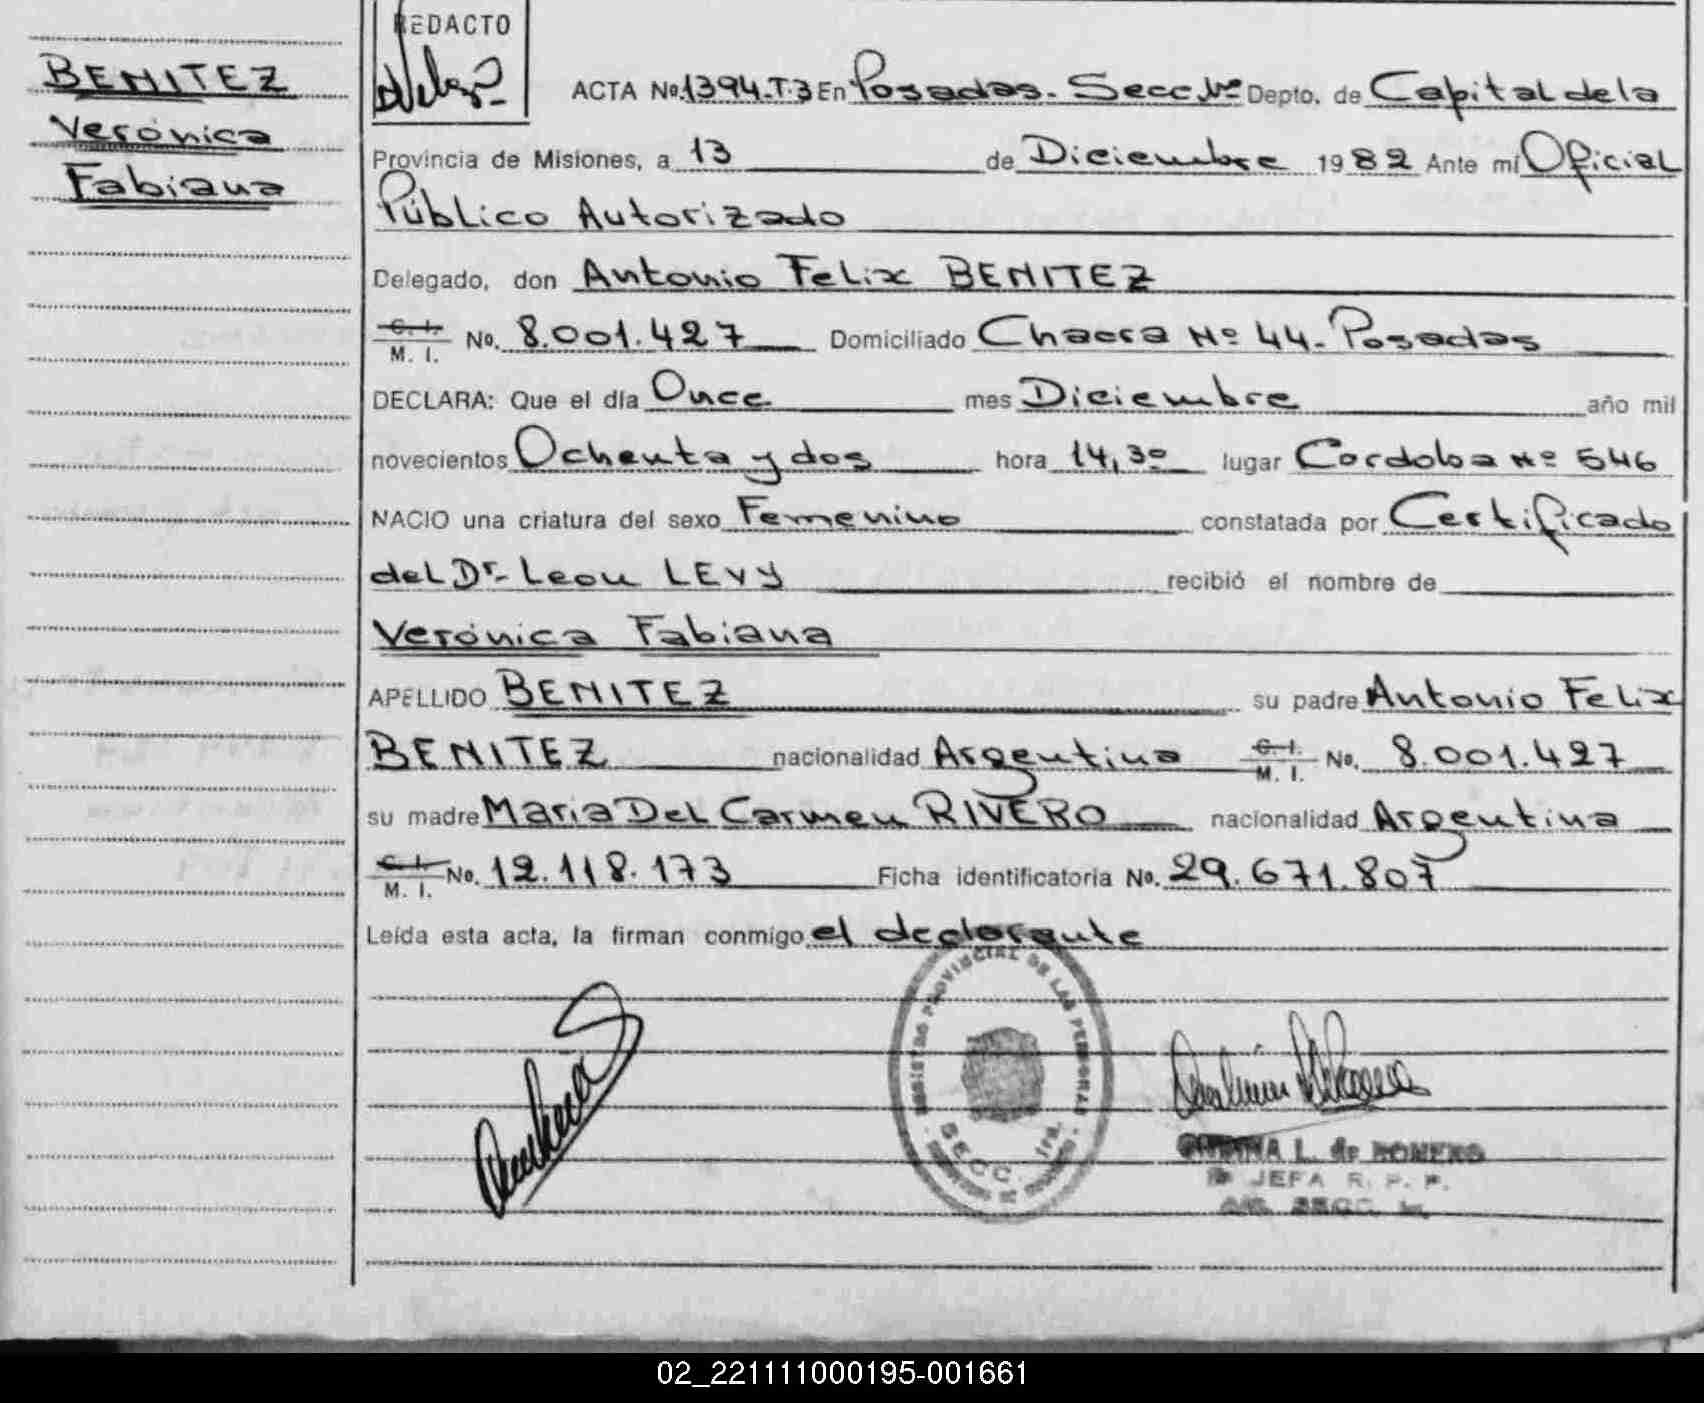 REDACTO
BENITEZ
Verónica
Fabiana
ACTA No. 1394-T.3 En Posadas. Secc Nº Depto. de Capital de la
Provincia de Misiones, a 13 de Diciembre 1982 Ante mí Oficial
Público Autorizado
Delegado, don Antonio Felix BENITEZ
C. I.
M. I. No. 8.001.427 Domiciliado Chacra Nº 44. Posadas
DECLARA: Que el día Once mes Diciembre año mil
novecientos Ochenta y dos hora 14,30 lugar Cordoba Nº 546
NACIO una criatura del sexo Femenino constatada por Certificado
del Dr. Leon LEVY recibió el nombre de
Verónica Fabiana
APELLIDO BENITEZ su padre Antonio Felix
BENITEZ nacionalidad Argentina C. I. M. I. No. 8.001.427
su madre Maria Del Carmen RIVERO nacionalidad Argentina
C. I. M. I. No. 12.118.173 Ficha identificatoria No. 29.671.807
Leída esta acta, la firman conmigo el declarante
REGISTRO PROVINCIAL DE LAS PERSONAS
SECC. 1ra.
L. de ROMERO
JEFA R. P. P.
SECC. 1a.
02_221111000195-001661